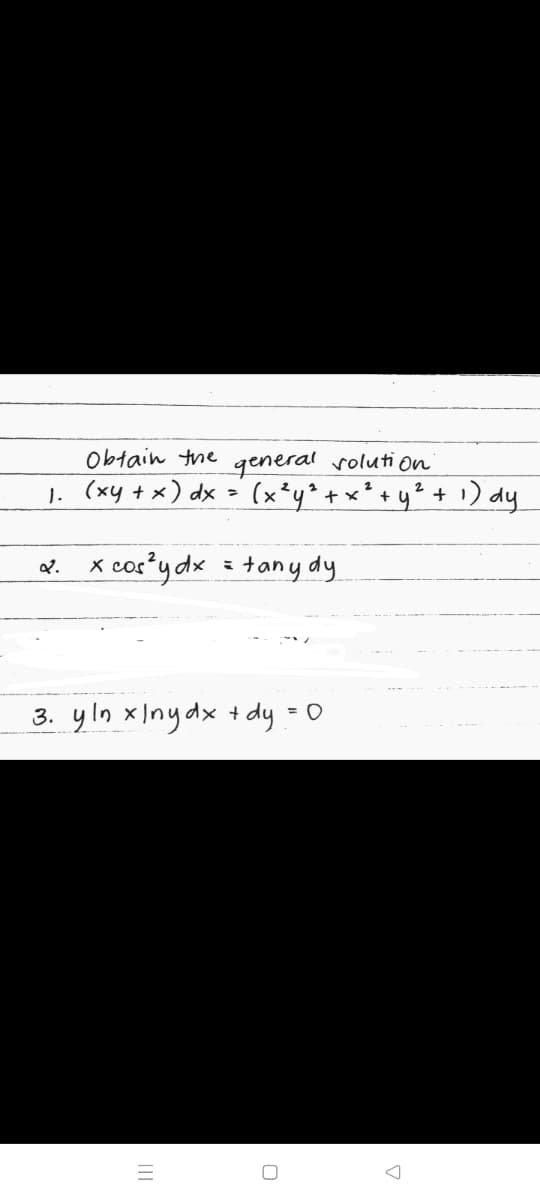 Obtain the general solution
1. (xy + x) dx = (x²y² + x² + y² + 1) dy
2. x cos²y dx = tan y dy
3. y ln x ln y dx + dy = 0